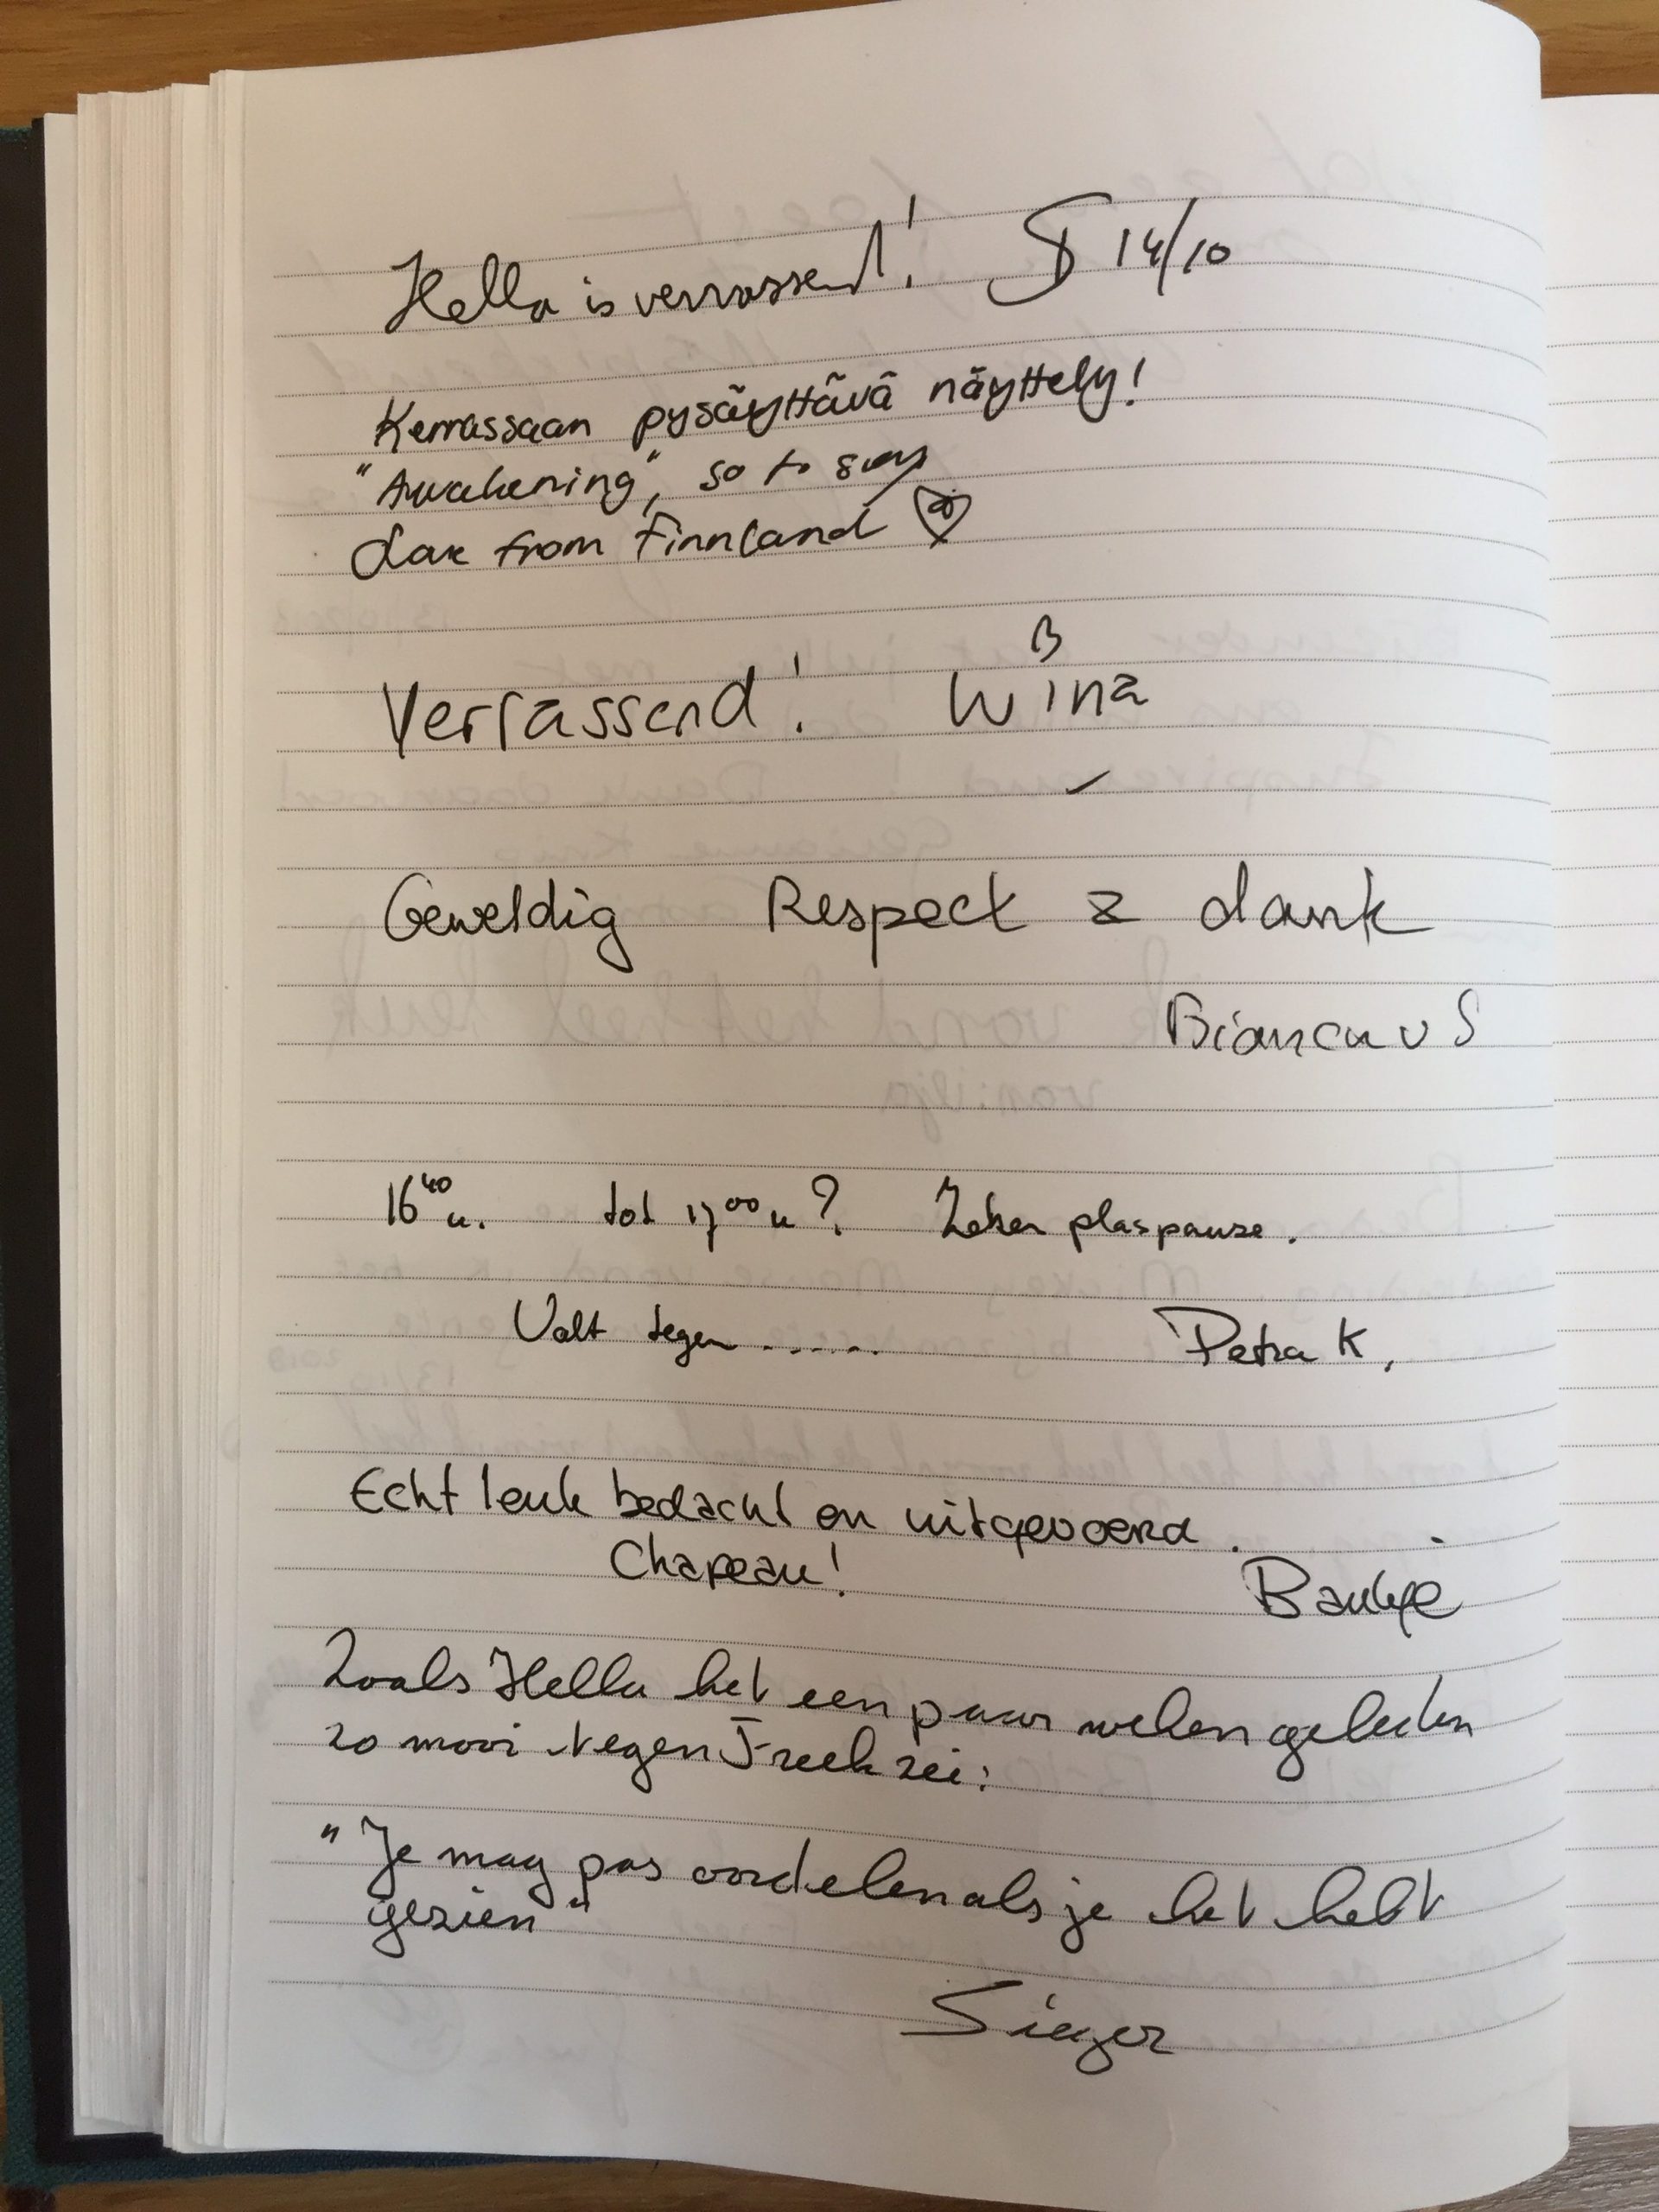 Hella is verrassend! 14/10
Kerrassaan pysäyttävä näyttely!
"Awakening", so to say
Love from Finnland
Verrassend! Wina
Geweldig Respect & dank
Bianca v S
16⁴⁰ u. tot 17⁰⁰ u? Zeker plaspauze.
Valt tegen ......
Petra K.
Echt leuk bedacht en uitgevoerd.
Chapeau!
Baukje
Zoals Hella het een paar weken geleden
zo mooi tegen Freek zei:
"Je mag pas oordelen als je het hebt
gezien"
Sieger